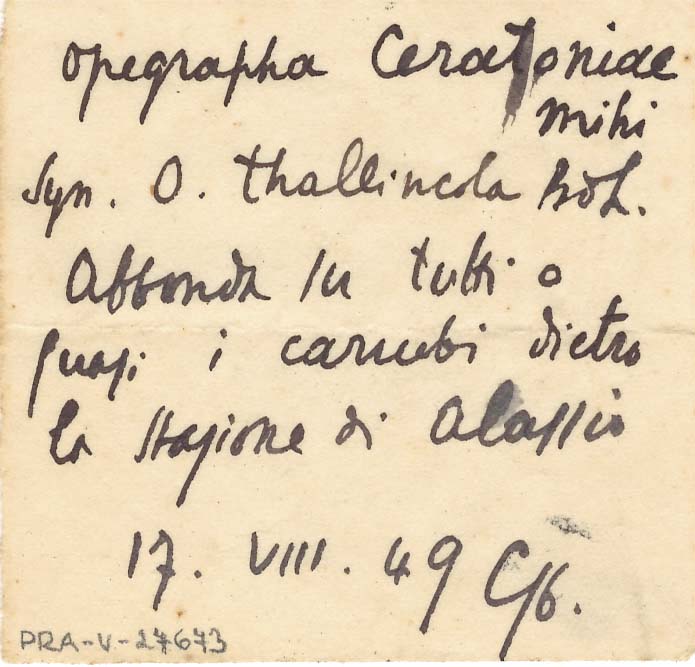 Opegrapha Ceratoniae
mihi
Syn. O. thallincola BdL.
Abbonda in tutti o
quasi i carrubi dietro
la stazione di Alassio
17. VIII. 49
PRA-V-27673